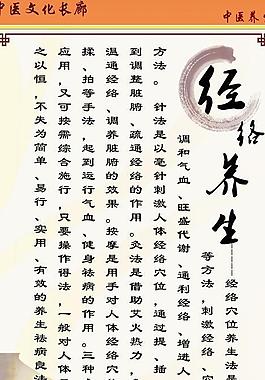 中医文化长廊
中医养
经络养生
——经络穴位养生法是
等方法，刺激经络、穴
调和气血、旺盛代谢、通利经络、增进人
方法。 针法是以毫针刺激人体经络穴位，通过提、插
到调整脏腑、疏通经络的作用。灸法是借助艾火热力，
温通经络、调养脏腑的效果。按摩是用手对人体经络穴
揉、拍等手法，起到运行气血、健身祛病的作用。三种
应用，又可按需综合施行，只要操作得法，一般对人体
之以恒，不失为简单、易行、实用、有效的养生祛病良